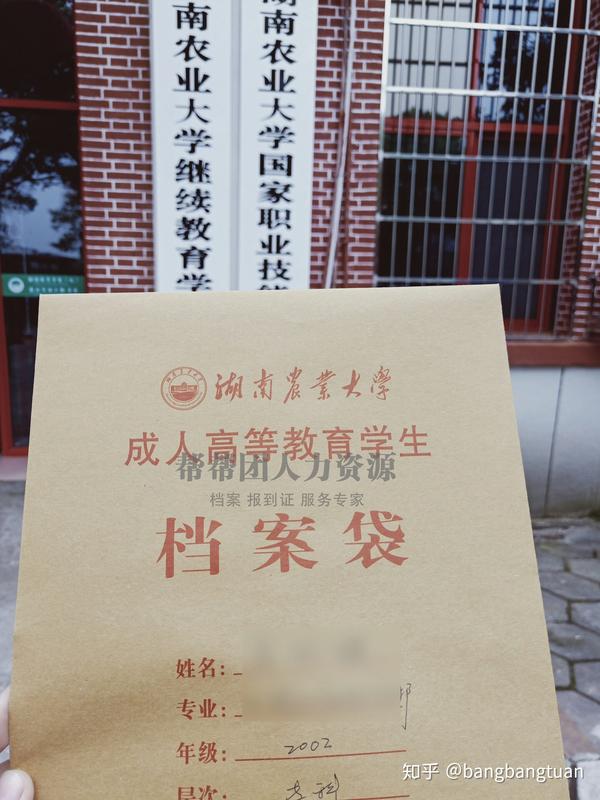 南农业大学继续教育学
湖南农业大学国家职业技能
湖南农業大學
成人高等教育学生
帮帮团人力资源
档案 报到证 服务专家
档案袋
姓名:
专业:
年级: 2002
层次: 专科
知乎 @bangbangtuan